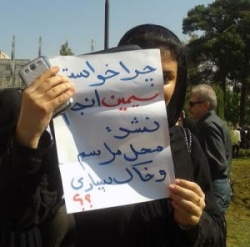 چرا خواست
سیمین انجا
نشد؟
محل مراسم
و خاک سپاری
؟؟